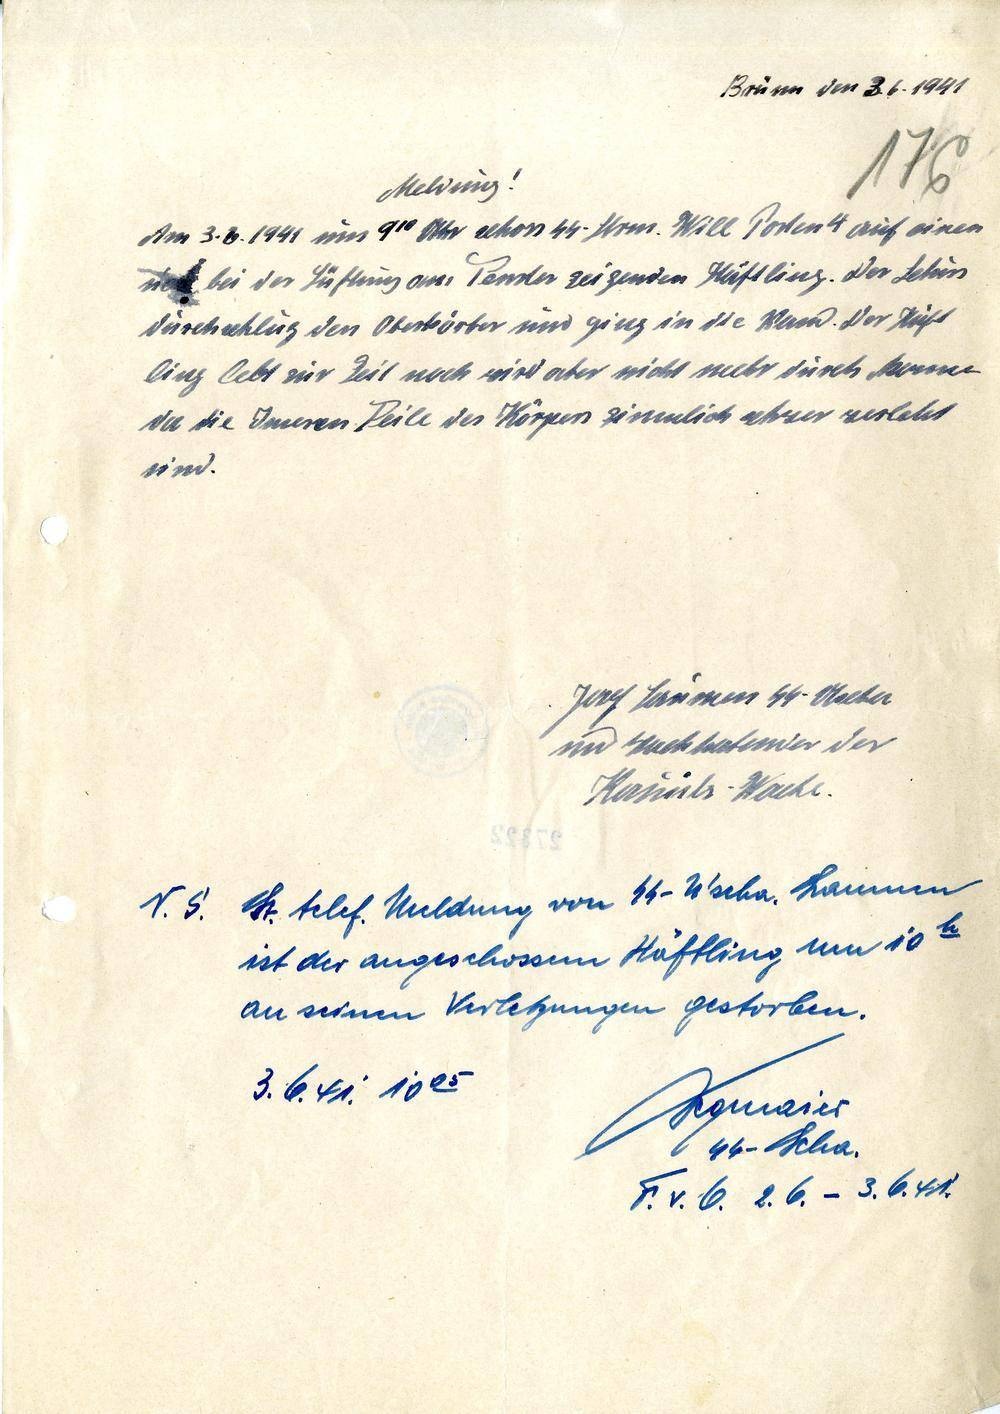 Brünn den 3.6.1941
176
Meldung!
Am 3.6.1941 um 9¹⁰ Uhr schoss SS-Strm. Will Posten 4 auf einen
bei der Lüftung am Fenster zeigenden Häftling. Der Schuss
durchschlug den Oberkörper und ging in die Wand. Der Häft
ling lebt zur Zeit noch wird aber nicht mehr durch
da die Inneren Teile des Körpers zimmlich schwer verletzt
sind.
Josef SS-
und der
Kaunitz-Wache.
27322
N.S. Lt. telef. Meldung von SS-U'scha. Laumen
ist der angeschossene Häftling um 10 h
an seinen Verletzungen gestorben.
3.6.41. 10 05
SS-Scha.
F.v.D. 2.6. – 3.6.41.